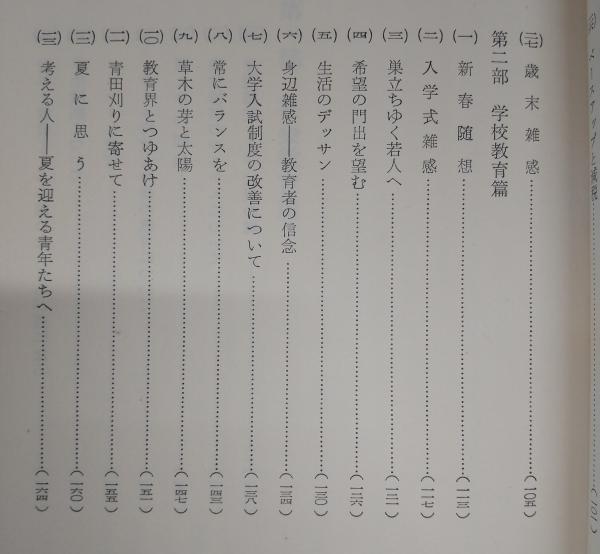 (二七) 歳末雑感……(一〇五)
第二部 学校教育篇
(一) 新春随想……(一一三)
(二) 入学式雑感……(一一七)
(三) 巣立ちゆく若人へ……(一二一)
(四) 希望の門出を望む……(一二六)
(五) 生活のデッサン……(一三〇)
(六) 身辺雑感――教育者の信念……(一三四)
(七) 大学入試制度の改善について……(一三八)
(八) 常にバランスを……(一四三)
(九) 草木の芽と太陽……(一四七)
(一〇) 教育界とつゆあけ……(一五一)
(一一) 青田刈りに寄せて……(一五五)
(一二) 夏に思う……(一六〇)
(一三) 考える人――夏を迎える青年たちへ……(一六四)